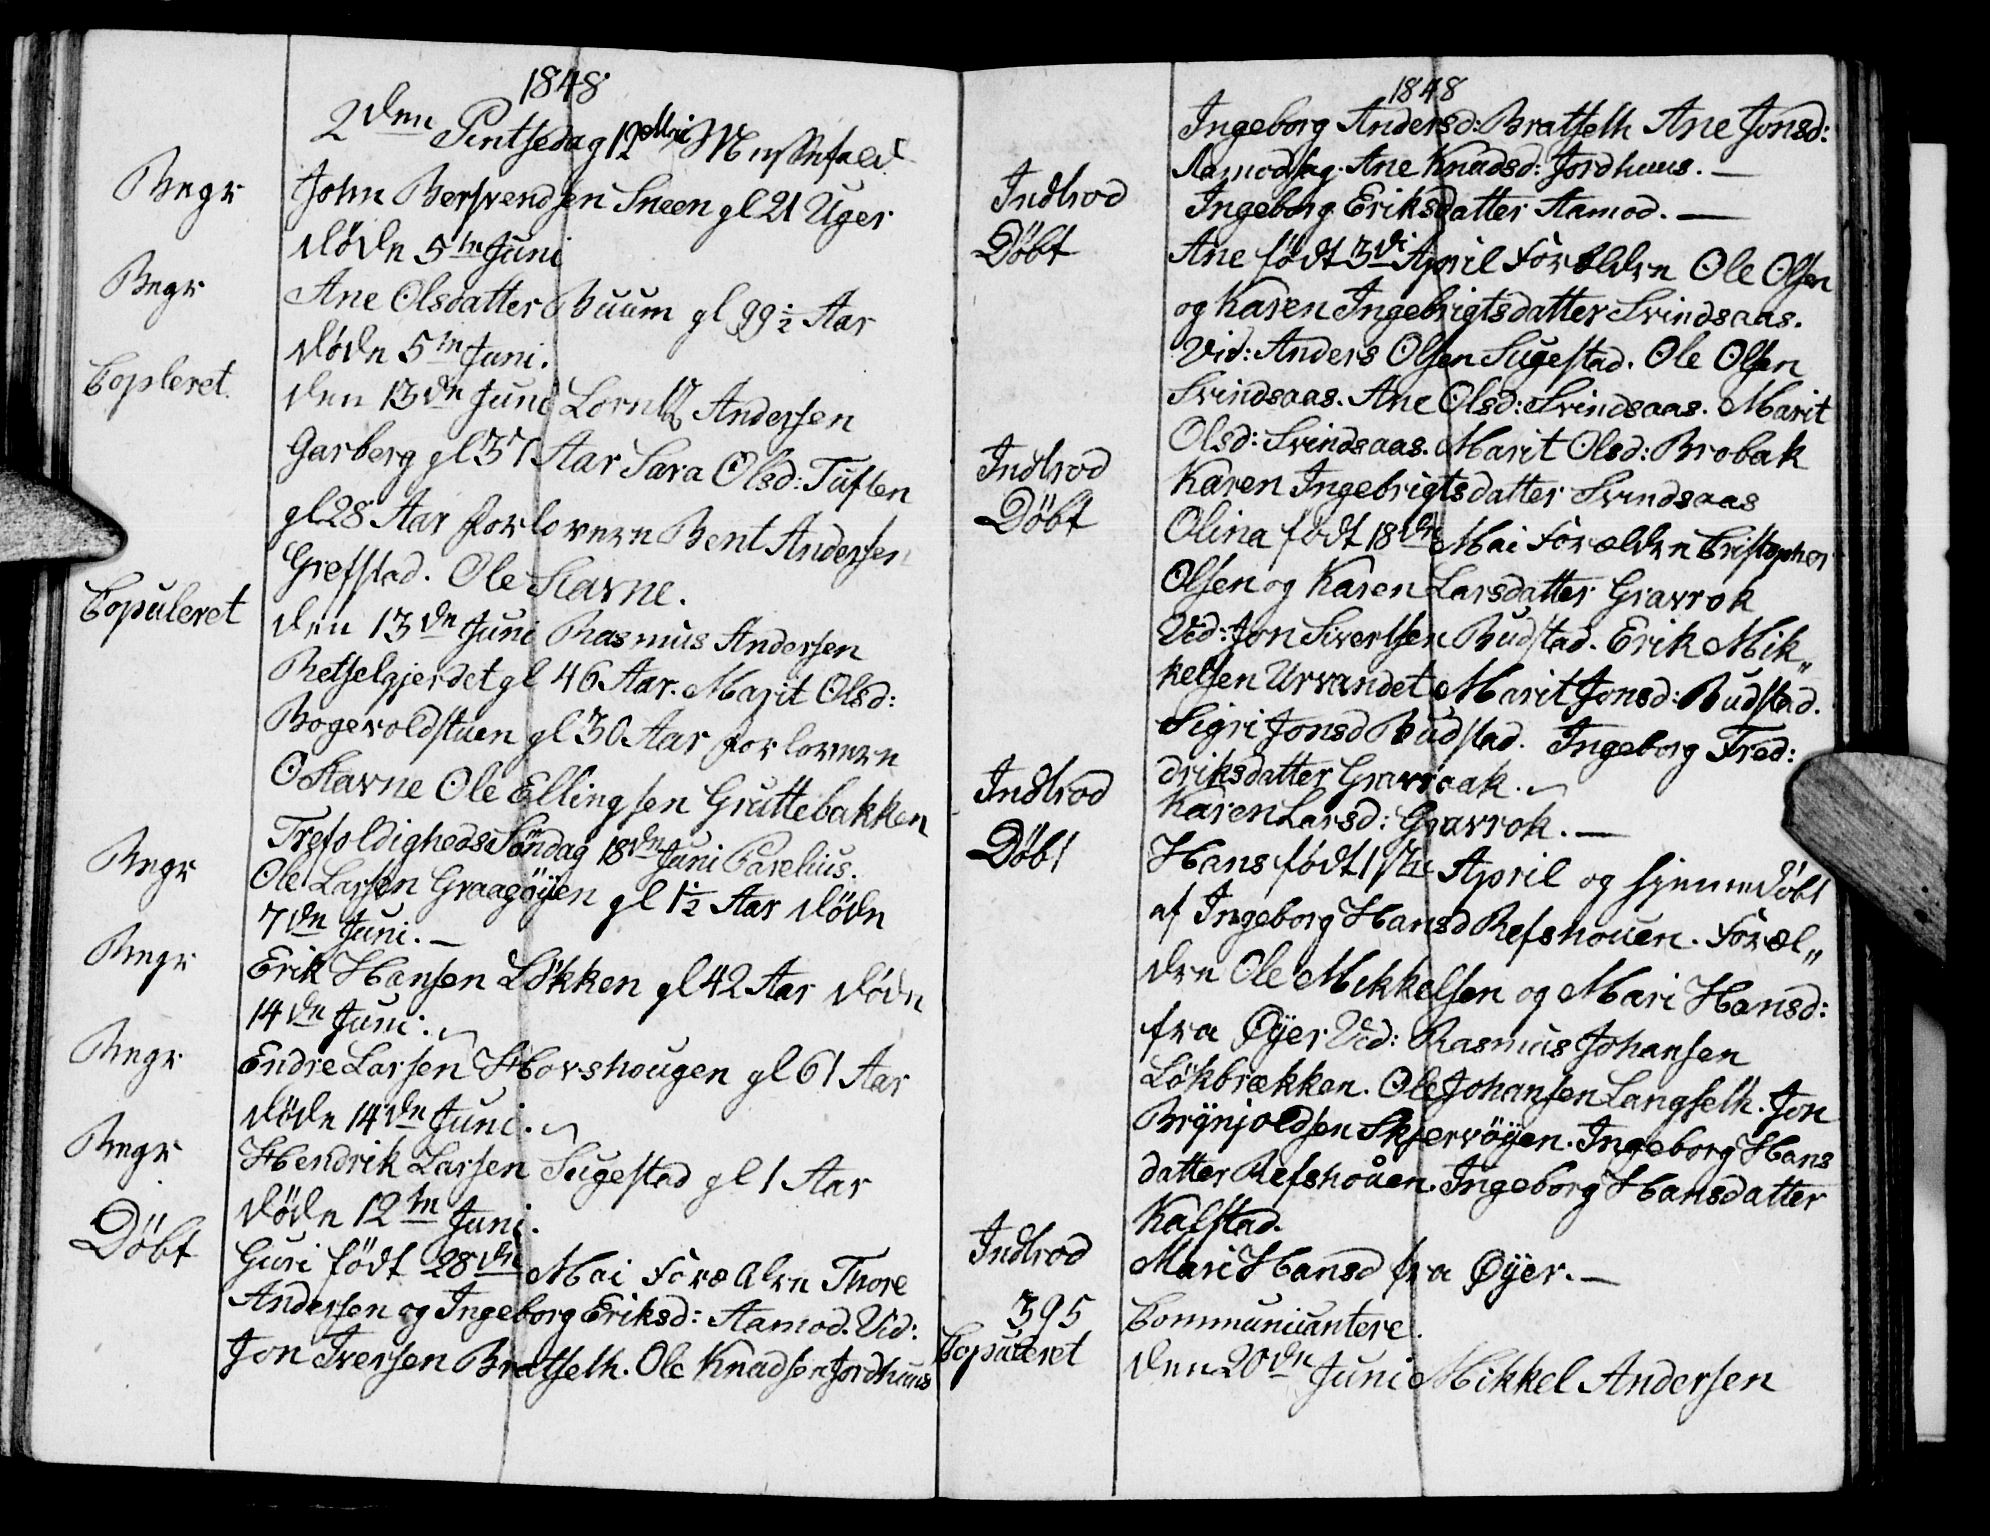 1848
2den Pintsedag 12 Messefald
Begr John Bersvendsen Sneen gl 21 Uger
døde 5te Juni
Begr Ane Olsdatter Buum gl 99 1/2 Aar
døde 5te Juni.
Copleret. den 13de Juni Lorntz Andersen
Garberg gl 37 Aar Sara Olsd: Tuften
gl 28 Aar forlovere Bent Andersen
Grefstad. Ole Stavne.
Copuleret den 13de Juni Rasmus Andersen
Retselgjerdet gl 46 Aar. Marit Olsd:
Bogevoldstuen gl 30 Aar forlovere
O Stavne Ole Ellingsen Gruttebakken
Trefoldigheds Söndag 18de Juni Parelius.
Begr Ole Larsen Graagöÿen gl 1 1/2 Aar døde
7de Juni. —
Begr Erik Hansen Løkken gl 42 Aar døde
14de Juni.
Begr Endre Larsen Hovshougen gl 61 Aar
døde 14de Juni.
Begr Hendrik Larsen Sugestad gl 1 Aar
døde 12te Juni.
Döbt Guri född 28de Mai Forældre Thore
Andersen og Ingeborg Eriksd: Aamod. Vid:
Jon Iversen Bratselh. Ole Knudsen Jordhuus
1848
Ingeborg Andersd: Bratselh Ane Jonsd:
Aamodhag. Ane Knudsd: Jordhuus. —
Indlrod Ingeborg Eriksdatter Aamod. —
Döbt Ane født 3di April Forældre Ole Olsen
og Karen Ingebrigtsdatter Svindsaas.
Vid: Anders Olsen Sugestad. Ole Olsen
Svindsaas. Ane Olsd: Svindsaas. Marit
Olsd: Svindsaas. Marit Olsd: Brobak
Indlrod Karen Ingebrigtsdatter Svindsaas
Döbt Olina født 18de Mai Forældre Cristopher
Olsen og Karen Larsdatter Gravrok
Vid: Jon Sivertsen Budstad. Erik Mik„
kelsen Urvandet Marit Jonsd: Budstad.
Sigri Jonsd Budstad. Ingeborg Fred:
driksdatter Gravraak.
Indlrod Karen Larsd: Gravrok. —
Döbt Hans født 17de April og hjemmedöbt
af Ingeborg Hansd Refshouen. Foræl„
dre Ole Mikkelsen og Mari Hansd:
fra Øÿer Vid: Rasmus Johansen
Løkbrækken. Ole Johansen Langselh. Jon
Brÿnjoldsen Skjervöÿen. Ingeborg Hans
datter Refshouen. Ingeborg Hansdatter
Kalstad.
Indlrod Mari Hansd fra Øÿer. —
395 Communicantere.
Copuleret den 20de Juni Mikkel Andersen